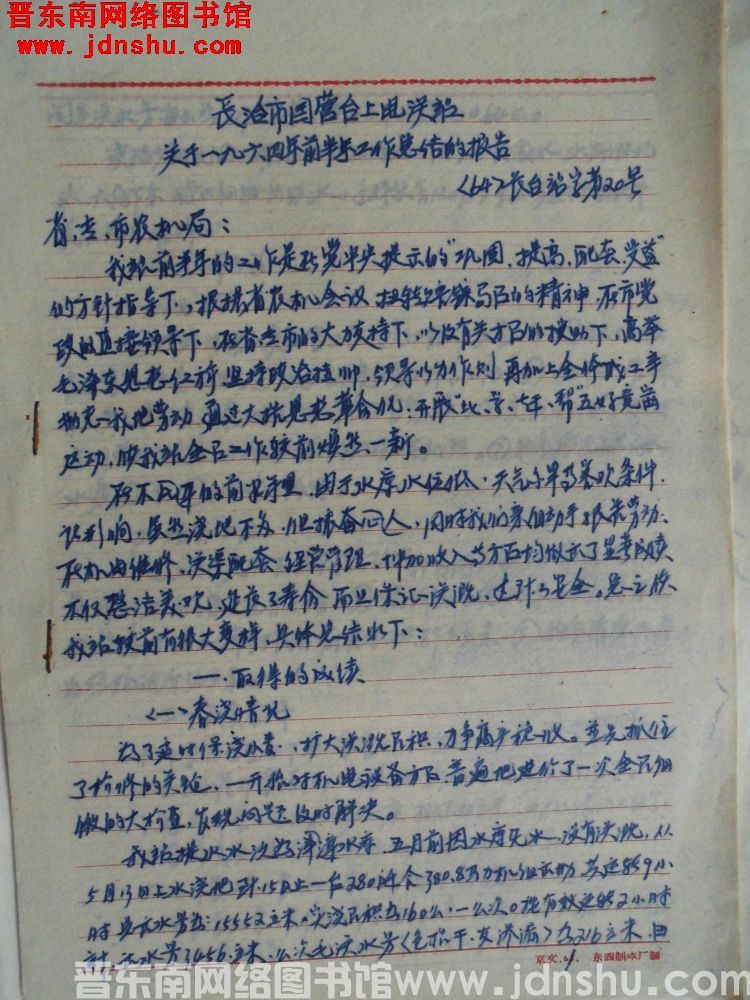 晋东南网络图书馆
www.jdnshu.com
長治市国营台上电灌站
关于一九六四年前半年工作总结的报告
〈64〉长台站字第20号
省、专、市农机局：
我站前半年的工作是在党中央提示的"巩固、提高、配套、发益"
的方针指导下，根据省农机会议 扭转 的精神，在市党
政的直接领导下，在省专市的大力支持下，以及有关方面的援助下，高举
毛泽东思想红旗 坚持政治挂帅，领导以身作则 再加上全体职工辛
勤 劳动 通过大搞思想革命化，开展"比、学、赶、帮"五好竞赛
运动，使我站全面工作较前焕然一新。
在不同 的前半年里，由于水库水位低，天气 等 条件
影响，虽然浇地不多，但振奋人，同时我们亲自动手 劳动、
在机电维修、灌渠配套 经营管理、增加收入等方面均做出了显著成绩
不仅整洁美观，延长了寿命 而且保证灌溉，达到了安全。总之使
我站较前有很大变样，具体总结如下：
一、取得的成绩
〈一〉春浇情况
为了适时保浇小麦，扩大灌溉面积，力争高产稳收。首先抓住
了检修的关键，一开始对机电设备方面 普遍地进行了一次全面细
致的大检查，发现问题及时解决。
我站提水水源为漳泽水库，五月前因水库无水，没有灌溉，从
5月13日上水浇地到15日止一台280 合380.8马力机组 共运转9小
时 水量为：15552立米，实浇面积为160亩，一亩次 有效运转2小时
计 水量3456立米，亩次毛灌水量〈包括干、支渗漏〉为216立米，由
京文.61. 东四制本厂制
晋东南网络图书馆
www.jdnshu.com